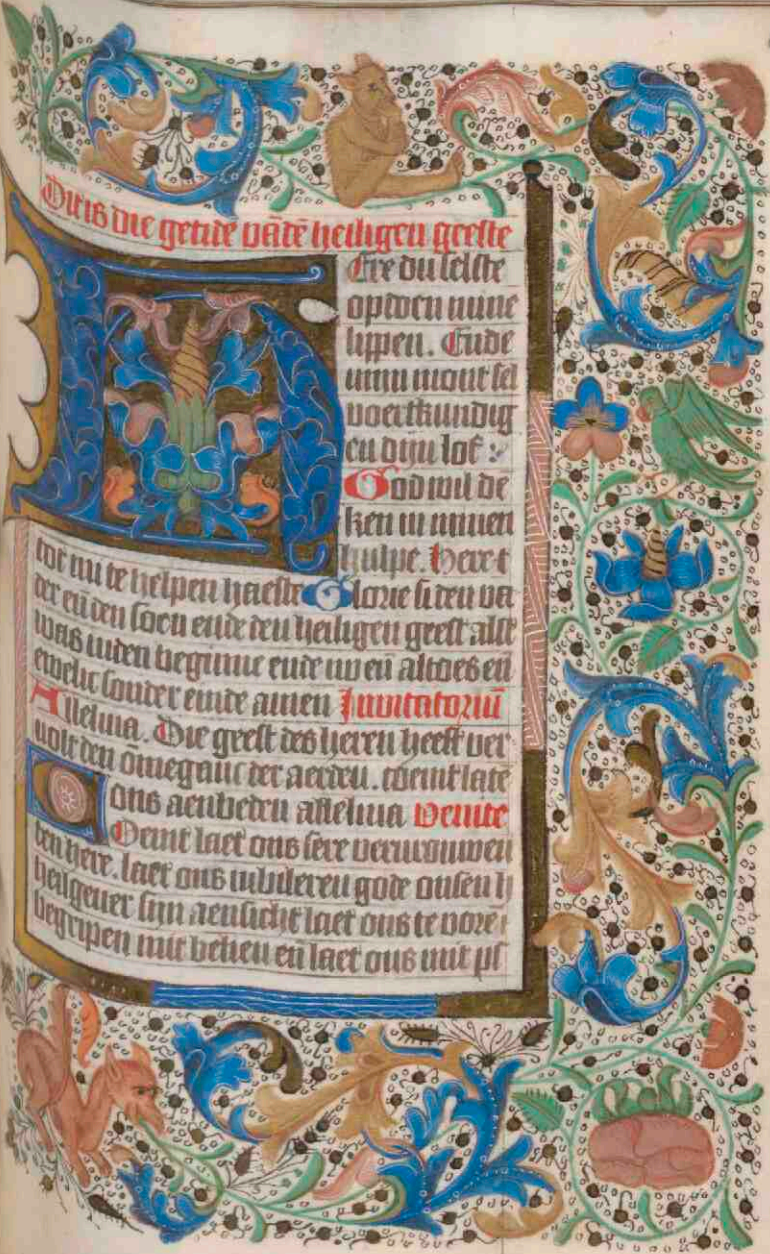 Dit is die getide vādē heiligen geeste
Here du selste
opdoen mine
lippen. Ende
minn mont sel
voertkundig
en dijn lof :
God wil de
ken in minen
hulpe. Here t
tot mi te helpen haeste Glorie si den va
der eñ den soon ende den heiligen geest alst
was inden beginne ende nv eñ altoes eñ
ewelic sonder einde amen Inuitatoriū
Alleluia. Die geest des heren heeft ver
uolt den ōmeganc der aerden. coemt late
ons aenbeden alleluia Venite
Coemt laet ons sere verurouwen
den here. laet ons iubileren gode onsen h
heilgeuer sijn aensicht laet ons te vorē
begripen mit belien eñ laet ons mit ps